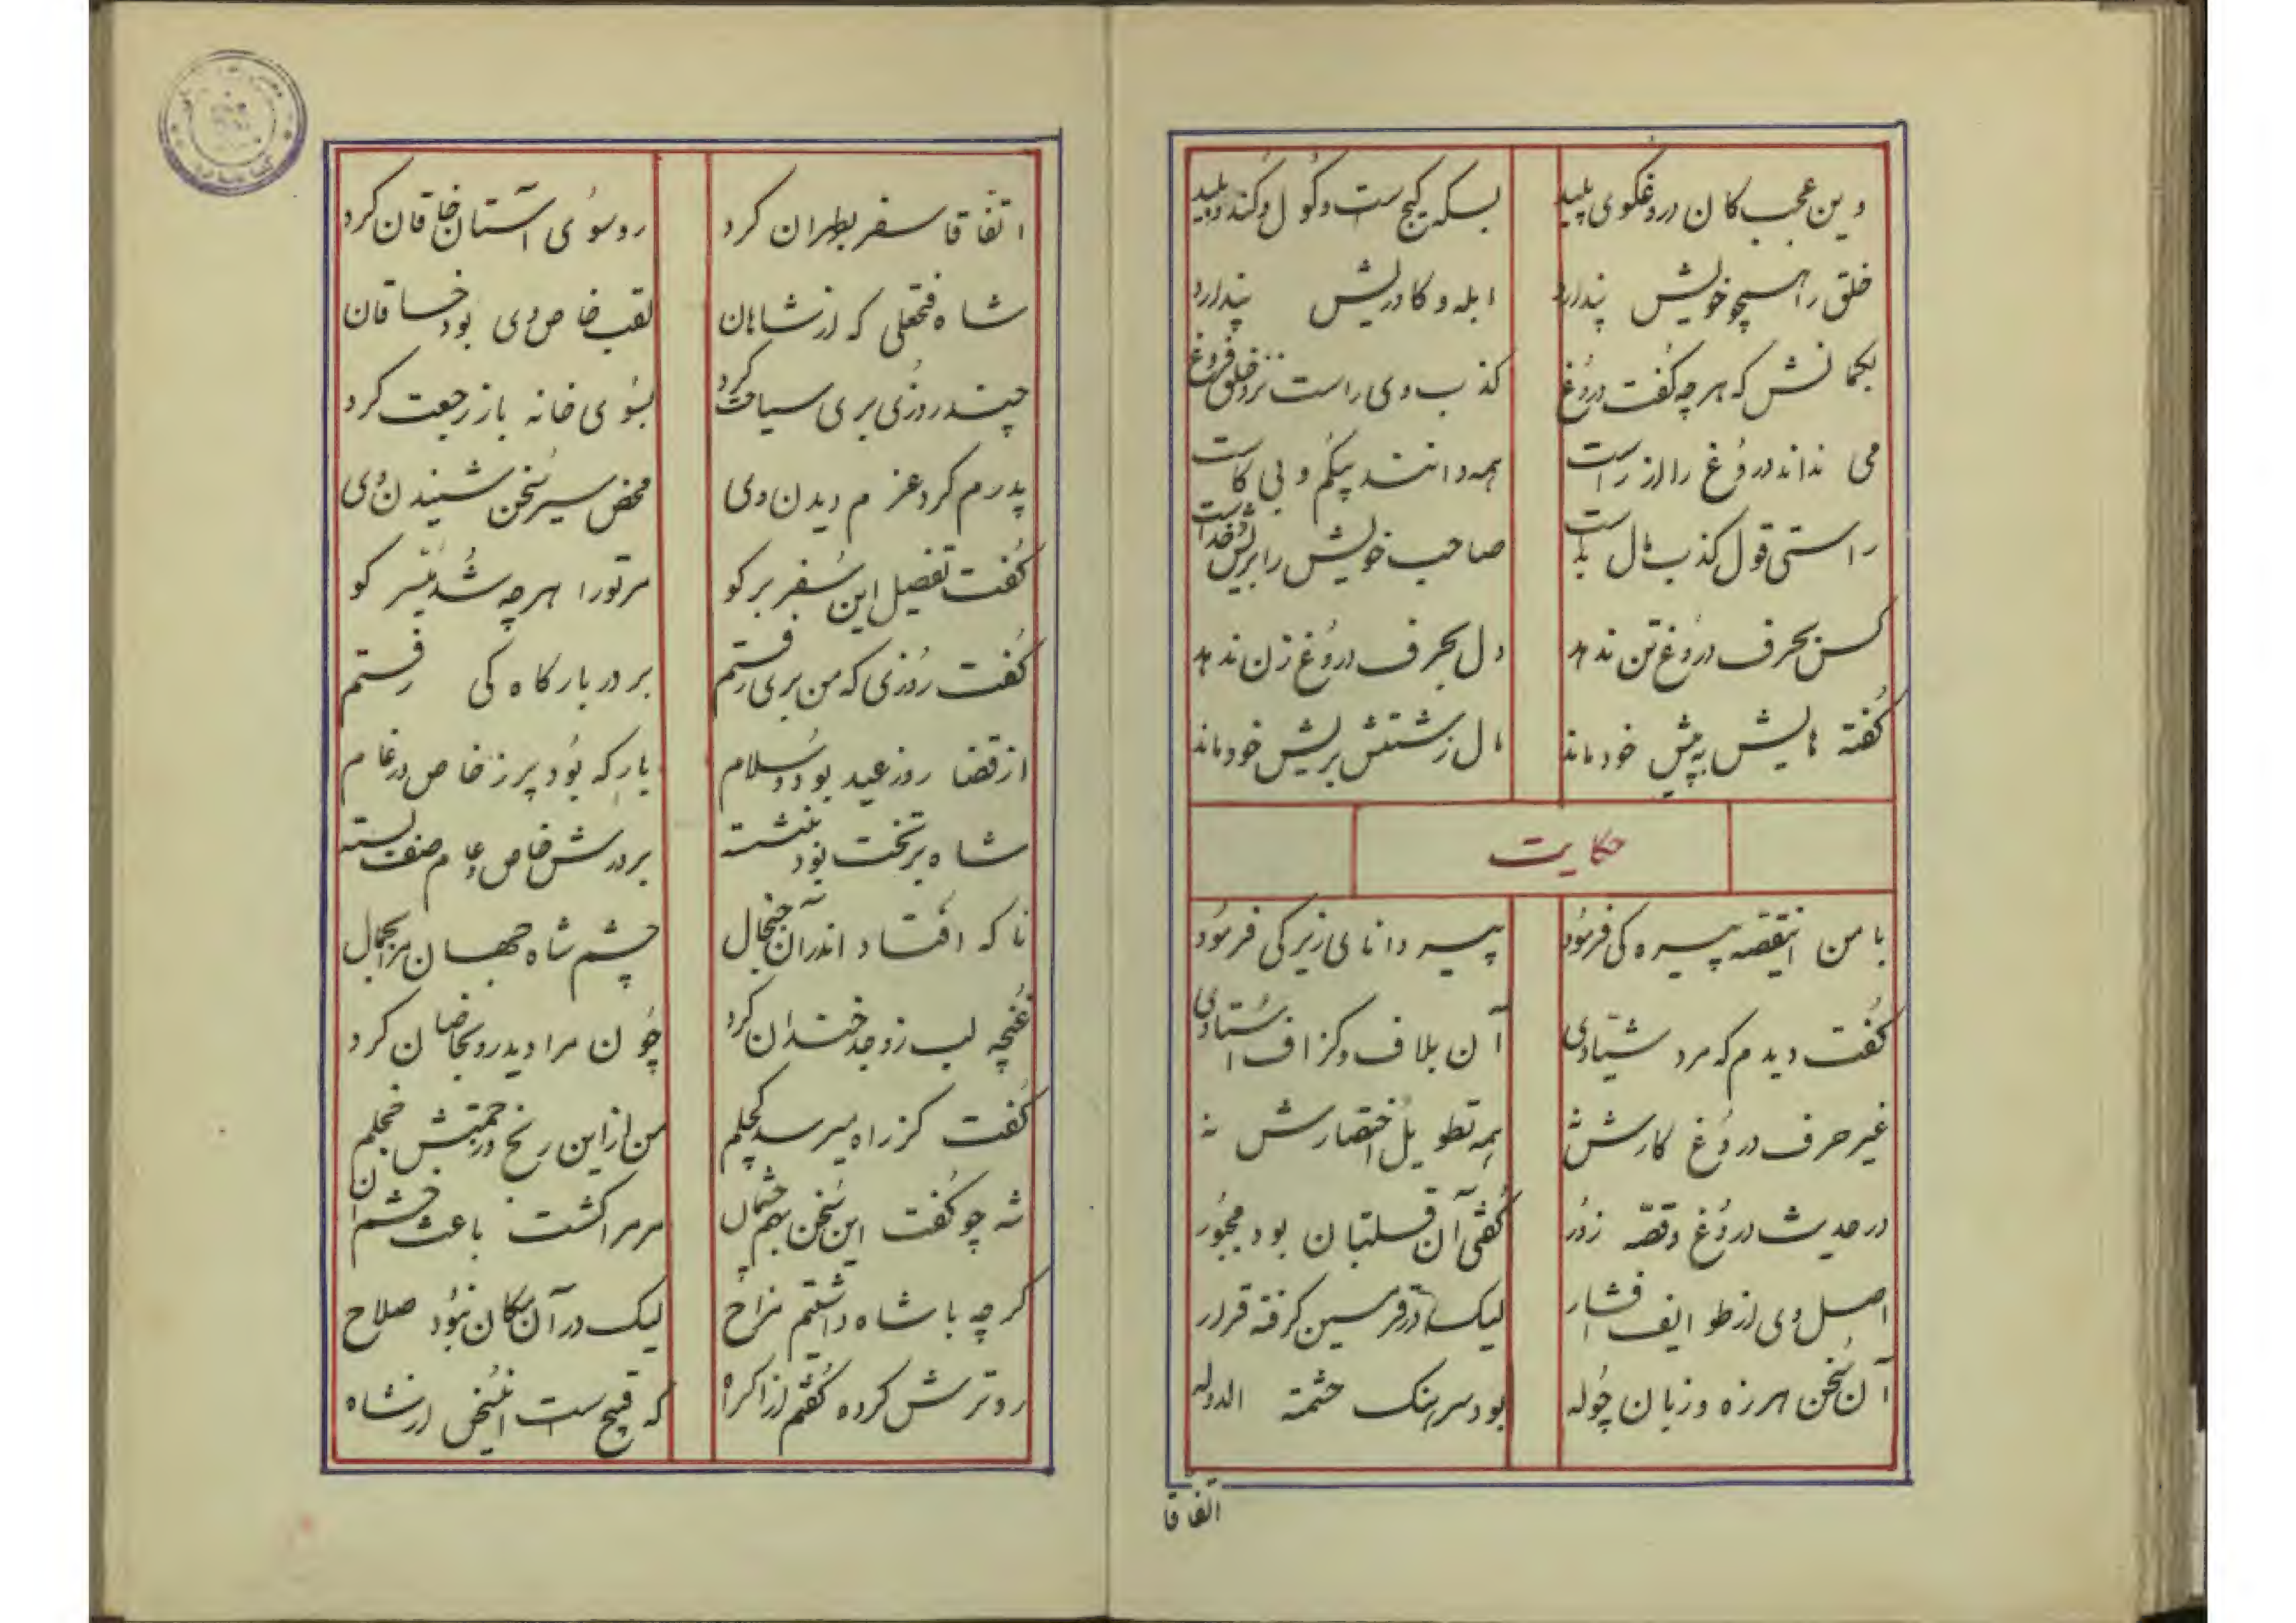 وین عجب کان دروغگوی پلید    بسکه گیج ست و گول و کند و بلید
خلق را همچو خویش پندارد    ابله و کاو ریش پندارد
بکمانش که هر چه گفت دروغ    کذب وی راست نزد خلق فروغ
می نداند دروغ را از راست    همه دانند بیکم و بی کاست
راستی قول کذب مال بداست    صاحب خویش را بریش خداست
کس بحرف دروغ تن ندهد    دل بحرف دروغ زن ندهد
گفته هایش به پیش خود ماند    مال زشتش بریش خود ماند
حکایت
با من اینقصه پیره کی فرمود    پیر دانای زیرکی فرمود
گفت دیدم که مرد شیادی    آن بلاف و کزاف استادی
غیر حرف دروغ کارش نه    بمه تطویل اختصارش نه
در حدیث دروغ و قصه زور    گفتی آن قلتبان بود مجبور
اصل وی از طوایف افشار    لیک در قرمسین کرفته قرار
آن سخن هرزه و زبان چوله    بود سرهنک حشمة الدوله
اتفاقا
اتفاقا سفر بطهران کرد    رو سوی آستان خاقان کرد
شاه فتحعلی که از شاهان    لقب خاص وی بود خاقان
چند روزی بری سیاحت کرد    بسوی خانه باز رجعت کرد
پدرم کرد عزم دیدن وی    محض سیر سخن شنیدن وی
گفت تفصیل این سفر بر کو    مر تو را هر چه شد میسر کو
گفت روزی که من بری رفتم    بر در بارکاه کی رفتم
از قضا روز عید بود و سلام    بارکه بود پر ز خاص و ز عام
شاه بر تخت بود بنشسته    بر درش خاص و عام صف بسته
ناکه افتاد اندر آن جنجال    چشم شاه جهان مرا بجمال
غنچه لب ز وجد خندان کرد    چون مرا دید رو بخاصان کرد
گفت کز راه میرسد کچلم    من از این رنج و زحمتش خجلم
شه چو گفت این سخن بهم چشمان    مر مرا گشت باعث خشم آن
کر چه با شاه داشتم مزاح    لیک در آن مکان نبود صلاح
رو ترش کرده گفتم از اکراه    که قبیح ست اینسخن از شاه